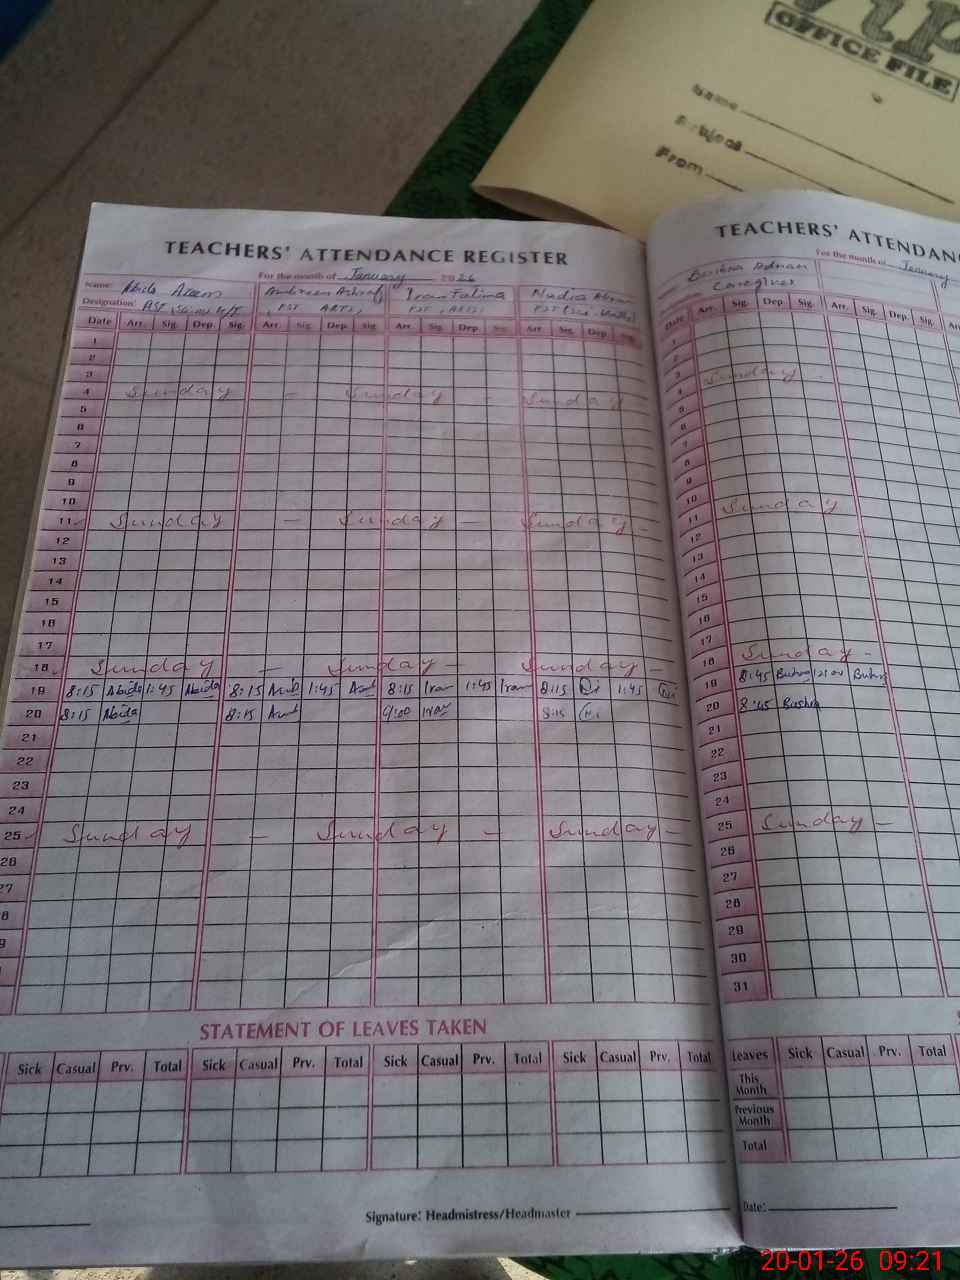 OFFICE FILE
Name
Subject
From
TEACHERS' ATTENDANCE REGISTER
For the month of January 2026
Name: Abida Azeem Ambreen Ashraf Iram Fatima Nadia
Designation:
Date Arr. Sig. Dep. Sig. Arr. Sig. Dep. Sig. Arr. Sig. Dep. Sig. Arr. Sig. Dep. Sig.
1
2
3
4 Sunday - Sunday - Sunday
5
6
7
8
9
10
11 Sunday - Sunday - Sunday -
12
13
14
15
16
17
18 Sunday - Sunday - Sunday -
19 8:15 Abida 1:45 Abida 8:15 1:45 8:15 Iram 1:45 Iram 8:15 1:45
20 8:15 Abida 8:15 9:00 Iram 8:15
21
22
23
24
25 Sunday - Sunday - Sunday -
26
27
8
9
STATEMENT OF LEAVES TAKEN
Sick Casual Prv. Total Sick Casual Prv. Total Sick Casual Prv. Total Sick Casual Prv. Total
Signature: Headmistress/Headmaster
TEACHERS' ATTENDANC
For the month of January
Bushra Adnan
Caregiver
Date Arr. Sig. Dep. Sig. Arr. Sig. Dep. Sig. Arr.
1
2
3
4 Sunday -
5
6
7
8
9
10
11 Sunday
12
13
14
15
16
17
18 Sunday -
19 8:45 Bushra Bushra
20 8:45 Bushra
21
22
23
24
25 Sunday -
26
27
28
29
30
31
Leaves Sick Casual Prv. Total
This Month
Previous Month
Total
Date:
20-01-26 09:21